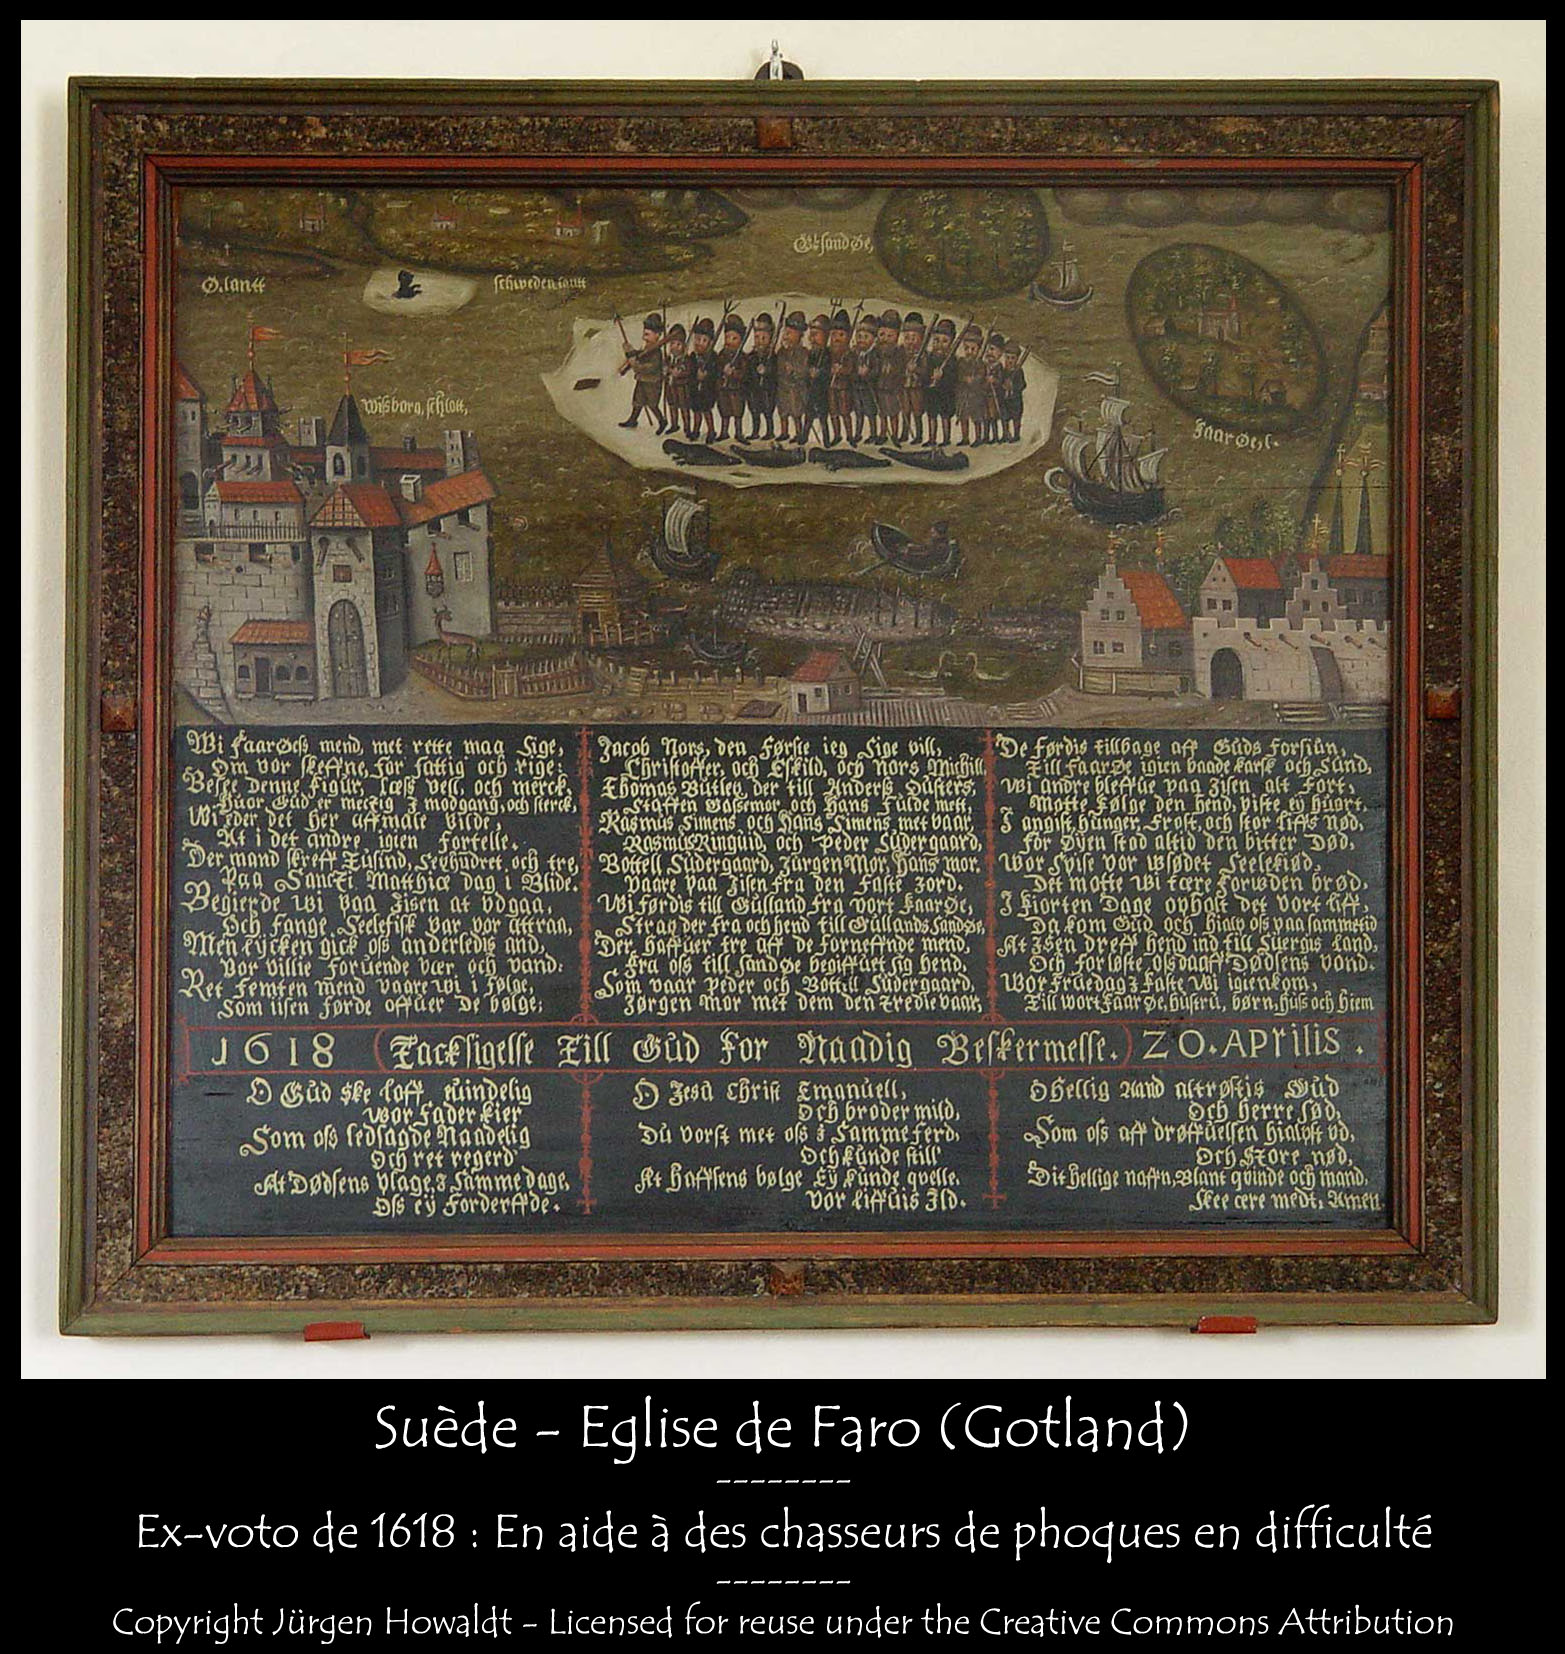 Ø.lantt
schweden lantt
Sandøe,
Wisborg, schlott,
Faarøe,
Wi Faarøess mend, met rette maa Sige,
Om vor skeffne, for fattig och rige:
Besee Denne Figur, læss vell, och merck,
Huor Gud er mectig I modgang, och sterck,
Wi eder det her affmale vilde,
At i det andre igien fortelle.
Der mand skreff Tusind, Sexhudret, och tre,
Paa Sancti Matthiæ dag i Blide.
Begierde wi paa Iisen at vdgaa,
Och fange Seelefisk var vor attraa,
Men lycken gick oss anderledis and,
Vor villie foruende vær, och vand:
Ret femten mend vaare wi i følge,
Som iisen førde offuer De bølge;
Jacob Nors, den Første ieg Sige vill,
Christoffer, och Eskild, och Nors Michill,
Thomas Butleg, der till Anderss, Austers,
Staffen Gassemor, och Hans Fulde mett,
Rasmus Simens, och Hans Simens met vaar,
Rasmus Ringuid, och Peder Sudergaard,
Bottell Sudergaard, Jürgen Mor, Hans mor.
Vaare paa Iisen fra den Faste Jord.
Wi førdis till Gulland fra vort Faarøe,
Strag der fra och hend till Gullands Sandøe,
Der haffuer tre aff de forneffnde mend,
Fra oss till Sandøe begiffuet sig hend,
Som vaar Peder och Bottell Sudergaard,
Jørgen Mor met dem den tredie vaar,
De Førdis tillbage aff Guds Forsiun,
Till Faarøe igien baade karsk och Sund,
Wi andre bleffue paa Iisen alt fort,
Motte Følge den hend, viste ey huort,
I angist, hunger, Frost, och stor liffs nød,
For Øyen stod altid den bitter Død,
Wor Spise vor wsødet Seelekiød,
Det motte wi tære forwden brød,
I Fiorten Dage opholt det vort liff,
Da kom Gud och hialp oss paa sammetid
At Isen dreff hend ind till Suergis land,
Och forløste oss daaff Dødsens vond.
Wor Fruedag I Faste Wi igienkom,
Till wort Faarøe, hustru, børn, Huss och hiem
1618 (Tacksigelse Till Gud For Naadig Beskermelse.) 20. APrilis.
O Gud ske loff, euindelig
Wor Fader kier
Som oss ledsagde Naadelig
Och ret regerd
At Dødsens plage, I samme dage,
Oss ey Forderffde.
O Jesu Christ Emanuell,
Och broder mild,
Du vorst met oss I Samme ferd,
Och kunde still
At Haffsens bølge Ey kunde qvelle.
Vor liffuis Ild.
O Hellig Aand altrøstis Gud
Och Herre sød,
Som oss aff drøffuelsen hialpst vd,
Och store nød,
Dit hellige naffn, Blant qvinde och mand,
Skee ære medt, Amen.
Suède - Eglise de Faro (Gotland)
--------
Ex-voto de 1618 : En aide à des chasseurs de phoques en difficulté
--------
Copyright Jürgen Howaldt - Licensed for reuse under the Creative Commons Attribution